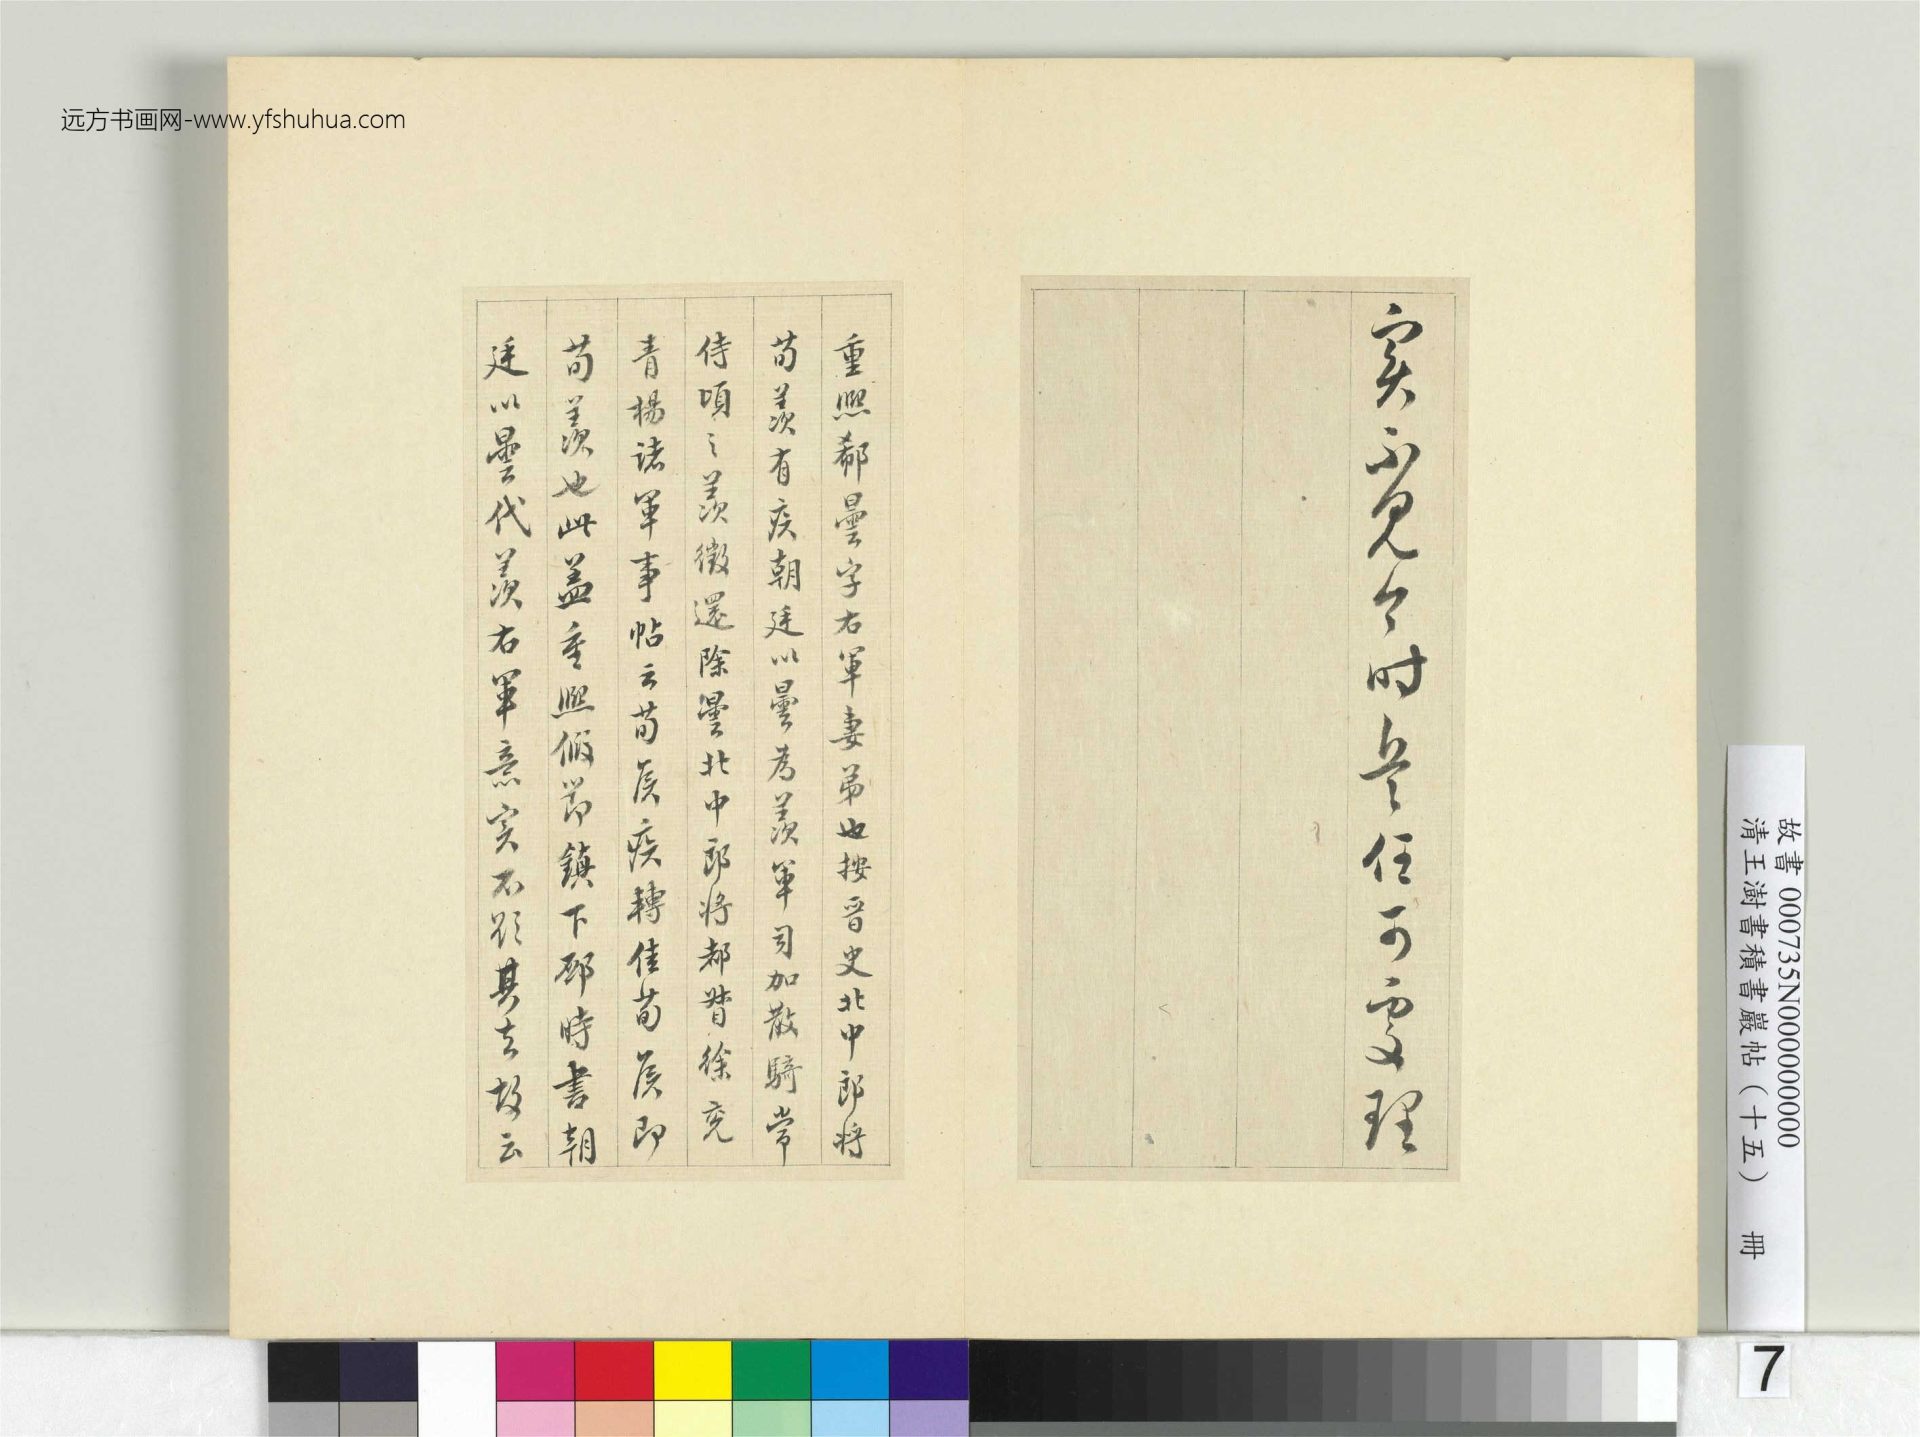 远方书画网-www.yfshuhua.com
实不见今时兵任可處理
重熙郗曇字右軍妻弟也按晉史北中郎將
荀羨有疾朝廷以曇為羨軍司加散騎常
侍頃之羨徵還除曇北中郎將都督徐兗
青揚諸軍事帖云荀侯疾轉佳荀侯即
荀羨也此盖重熙假節鎮下邳時書朝
廷以曇代羨右軍意實不欲其去故云
故書 000735N000000000
清王澍書積書巖帖(十五) 冊
7